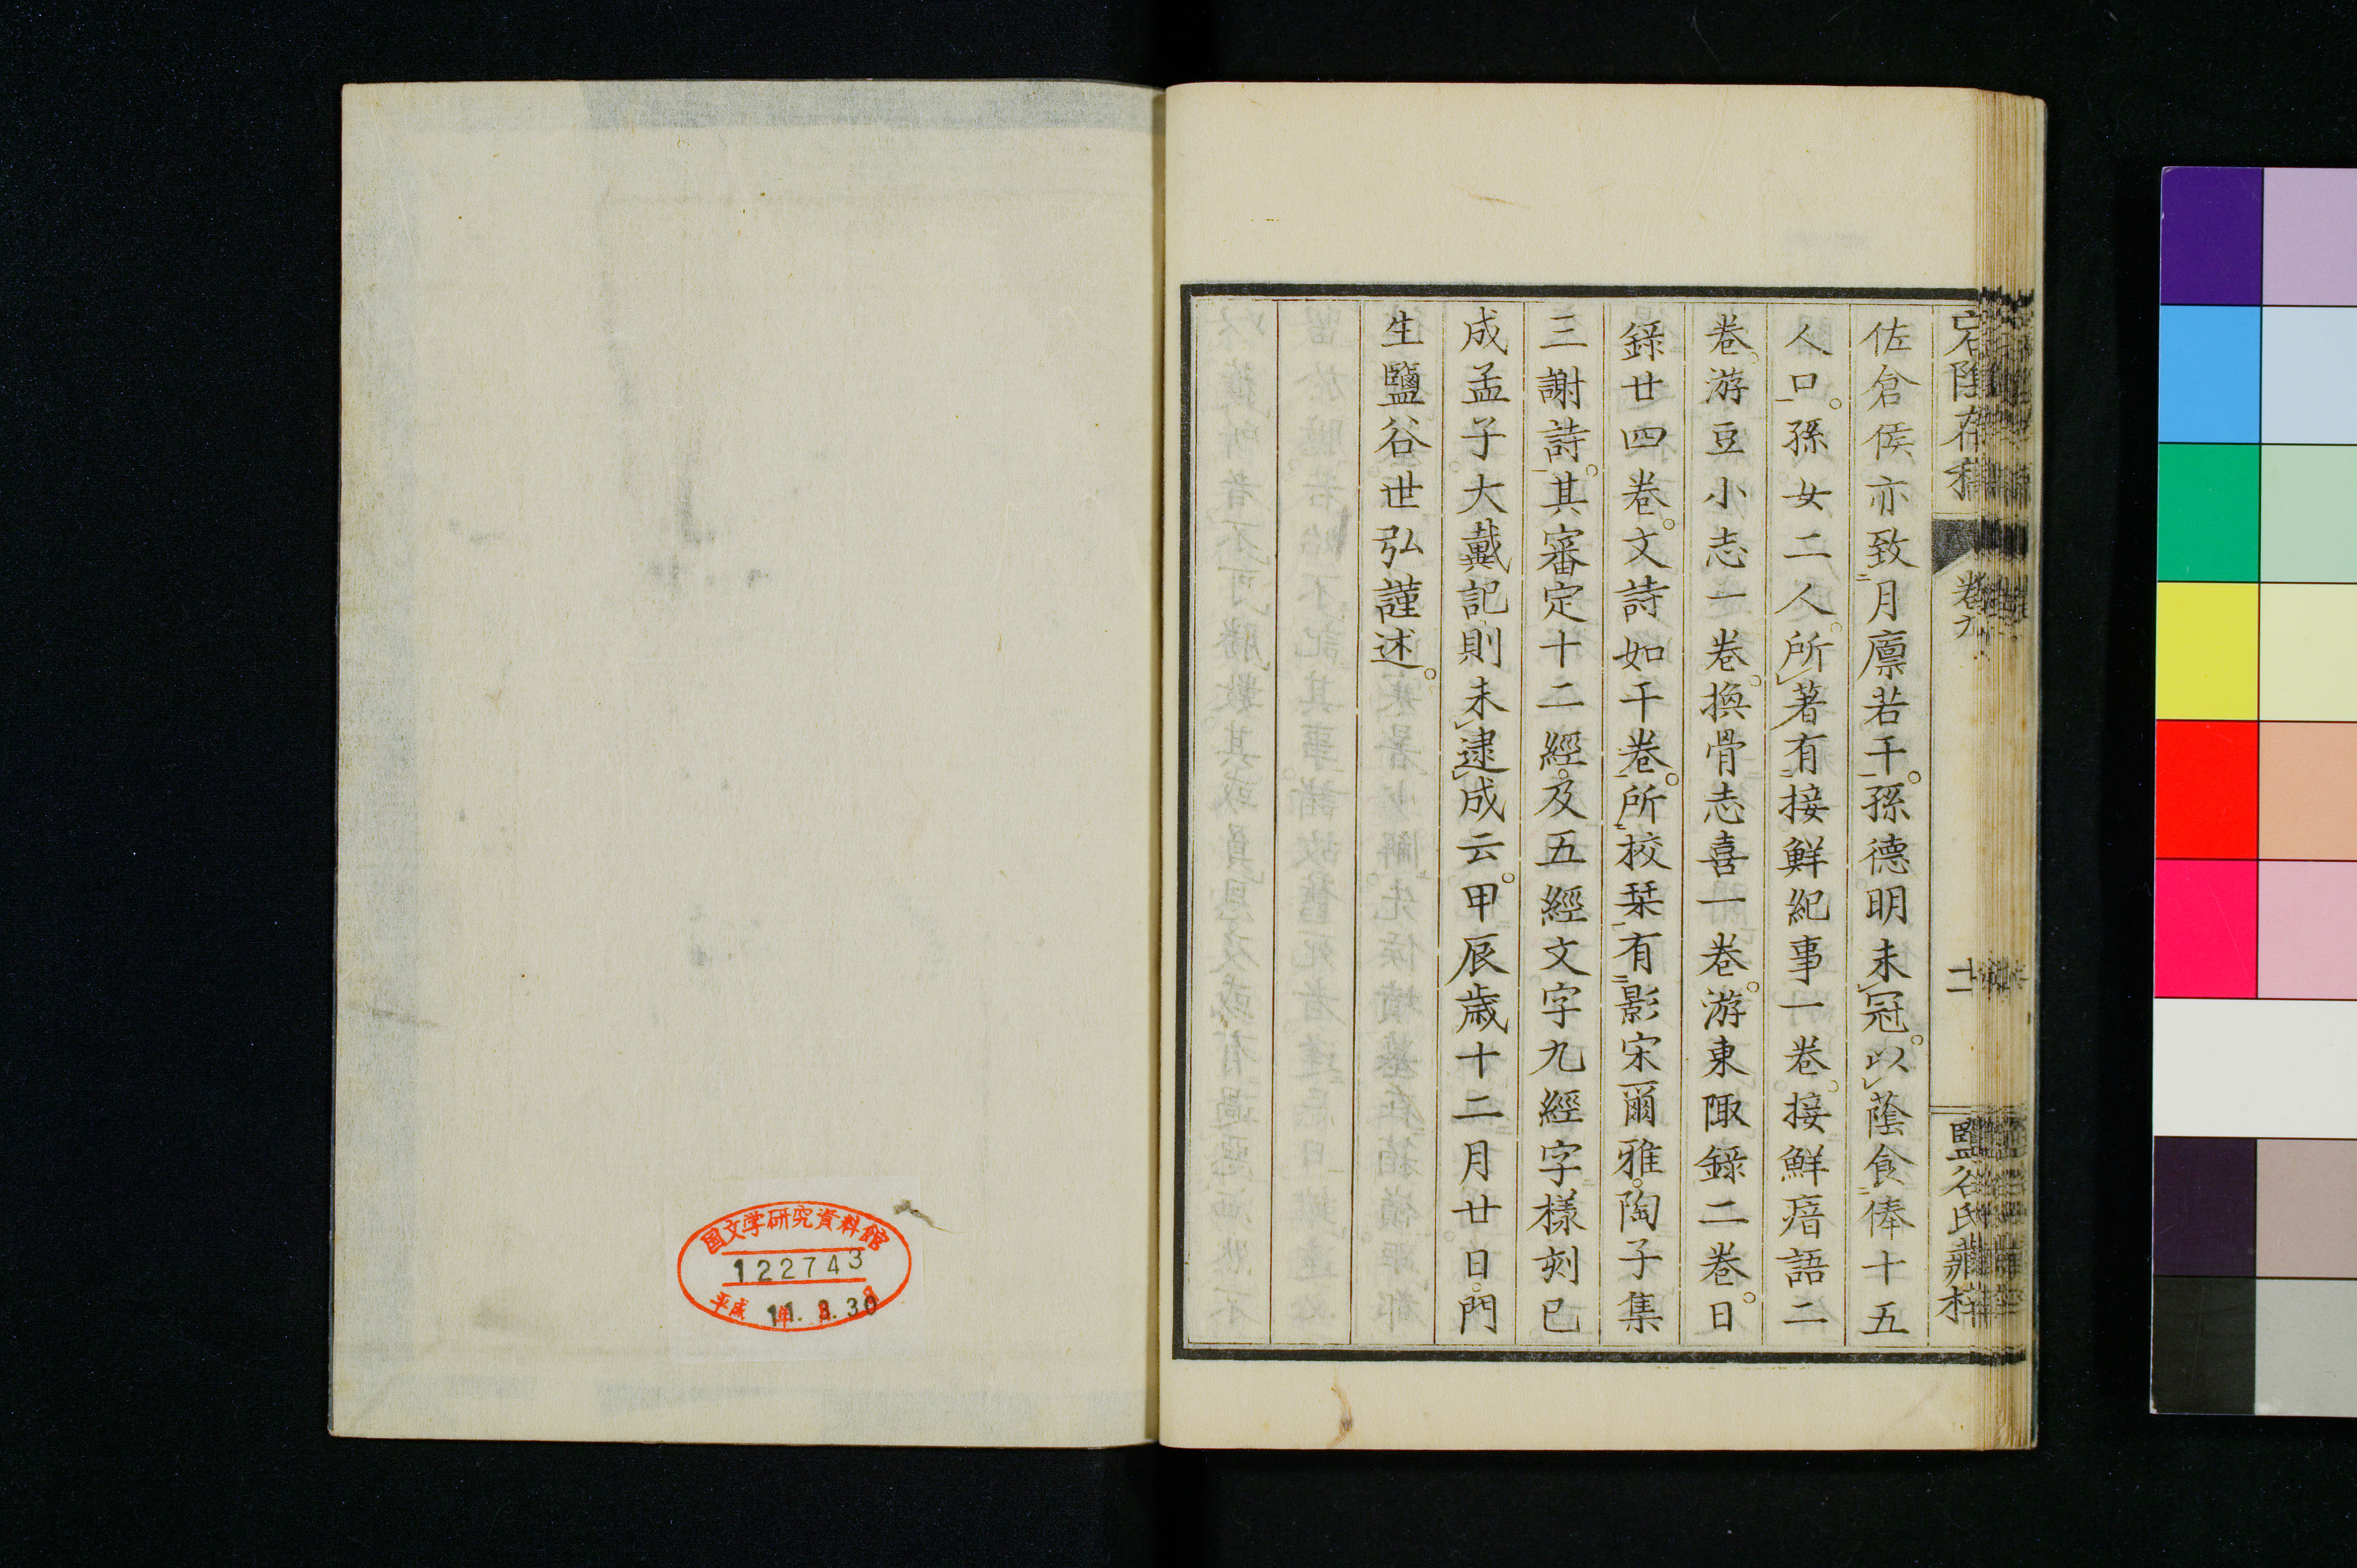 宕陰存稿 卷九 十二 鹽谷氏藏梓
佐倉侯亦致月廩若干。孫德明未冠。以蔭食俸十五
人口。孫女二人。所著有接鮮紀事一卷。接鮮瘖語二
卷。游豆小志一卷。換骨志喜一卷。游東陬錄二卷。日
錄廿四卷。文詩如干卷。所挍栞有影宋爾雅。陶子集
三謝詩。其審定十二經。及五經文字九經字樣刻已
成孟子。大戴記則未逮成云。甲辰歲十二月廿日。門
生鹽谷世弘謹述。
国文学研究資料館
122743
平成 11.3.30